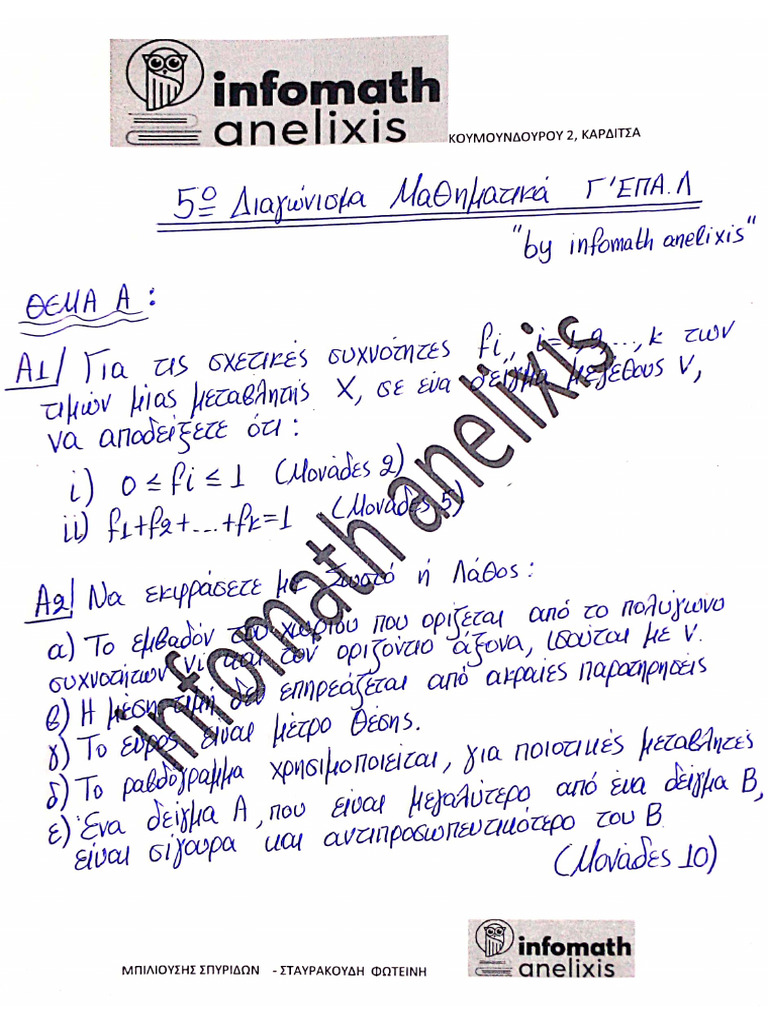 infomath
anelixis
ΚΟΥΜΟΥΝΔΟΥΡΟΥ 2, ΚΑΡΔΙΤΣΑ
5ο Διαγώνισμα Μαθηματικά Γ'ΕΠΑ.Λ
"by infomath anelixis"
ΘΕΜΑ Α:
Α1/ Για τις σχετικές συχνότητες fi, i=1,2...,k των
τιμών μίας μεταβλητής Χ, σε ένα δείγμα μεγέθους ν,
να αποδείξετε ότι:
i) 0 ≤ fi ≤ 1 (Μονάδες 2)
ii) f1+f2+...+fk=1 (Μονάδες 5)
infomath anelixis
Α2/ Να εκφράσετε με Σωστό ή Λάθος:
α) Το εμβαδόν του χωρίου που ορίζεται από το πολύγωνο
συχνοτήτων νi και τον οριζόντιο άξονα, ισούται με ν.
β) Η μέση τιμή δεν επηρεάζεται από ακραίες παρατηρήσεις
γ) Το εύρος είναι μέτρο θέσης.
δ) Το ραβδόγραμμα χρησιμοποιείται, για ποιοτικές μεταβλητές
ε) Ένα δείγμα Α, που είναι μεγαλύτερο από ένα δείγμα Β,
είναι σίγουρα και αντιπροσωπευτικότερο του Β
(Μονάδες 10)
infomath
anelixis
ΜΠΙΛΙΟΥΣΗΣ ΣΠΥΡΙΔΩΝ - ΣΤΑΥΡΑΚΟΥΔΗ ΦΩΤΕΙΝΗ